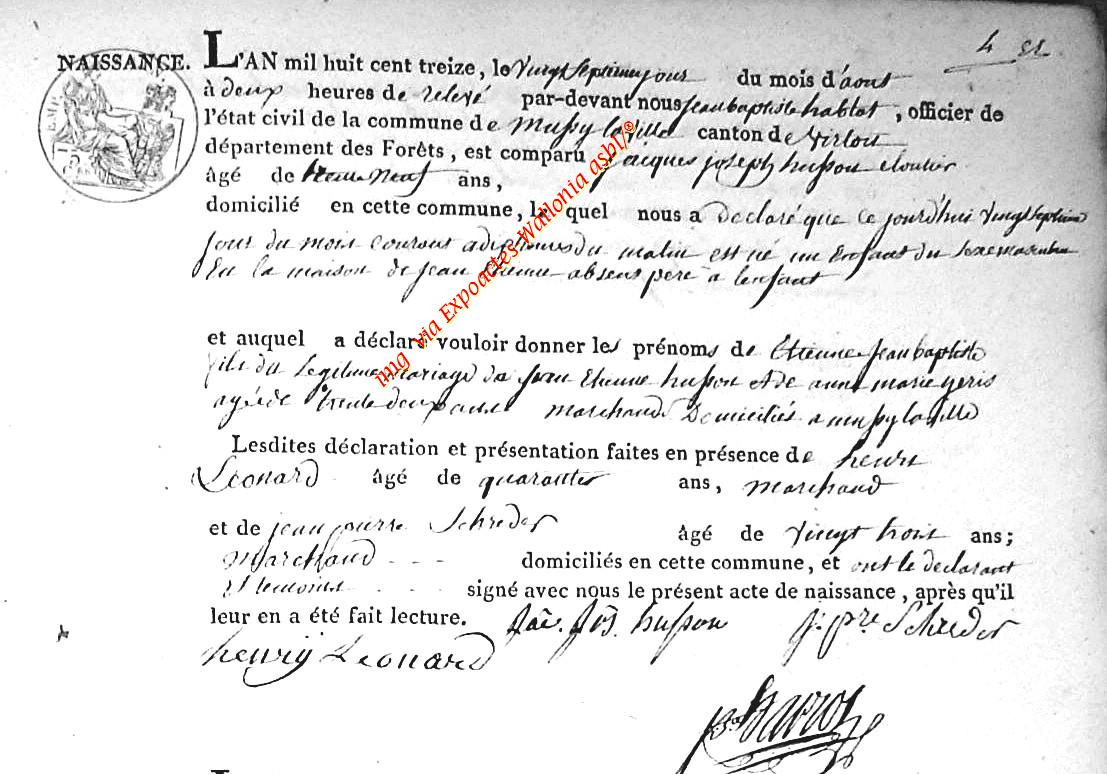 4 
NAISSANCE.
L'AN mil huit cent treize, le vingt septieme jour du mois d'aout
à deux heures de relevé par-devant nous jean baptiste hablot, officier de
l'état civil de la commune de mussy la ville canton de virton
département des Forêts, est comparu jacques joseph husson cloutier
âgé de trente neuf ans,
domicilié en cette commune, le quel nous a declaré que ce jourd'hui vingt septieme
jour du mois courant a dix heures du matin est né un Enfant du sexe masculin
En la maison de jean Etienne absent pere a lenfant
et auquel a déclaré vouloir donner les prénoms de Etienne jean baptiste
fils du Legitime mariage de jean Etienne husson et de anne marie
agé de trente deux ans marchand Domiciliés a mussy la ville
Lesdites déclaration et présentation faites en présence de henri
Léonard âgé de quarante ans, marchand
et de jean pierre Schreder âgé de vingt trois ans;
marchand - - - domiciliés en cette commune, et ont le declarant
et temoins - - - signé avec nous le présent acte de naissance, après qu'il
leur en a été fait lecture. jac. jos. husson j. pre Schreder
henry Leonard
img via Expoactes-Wallonia asbl/©